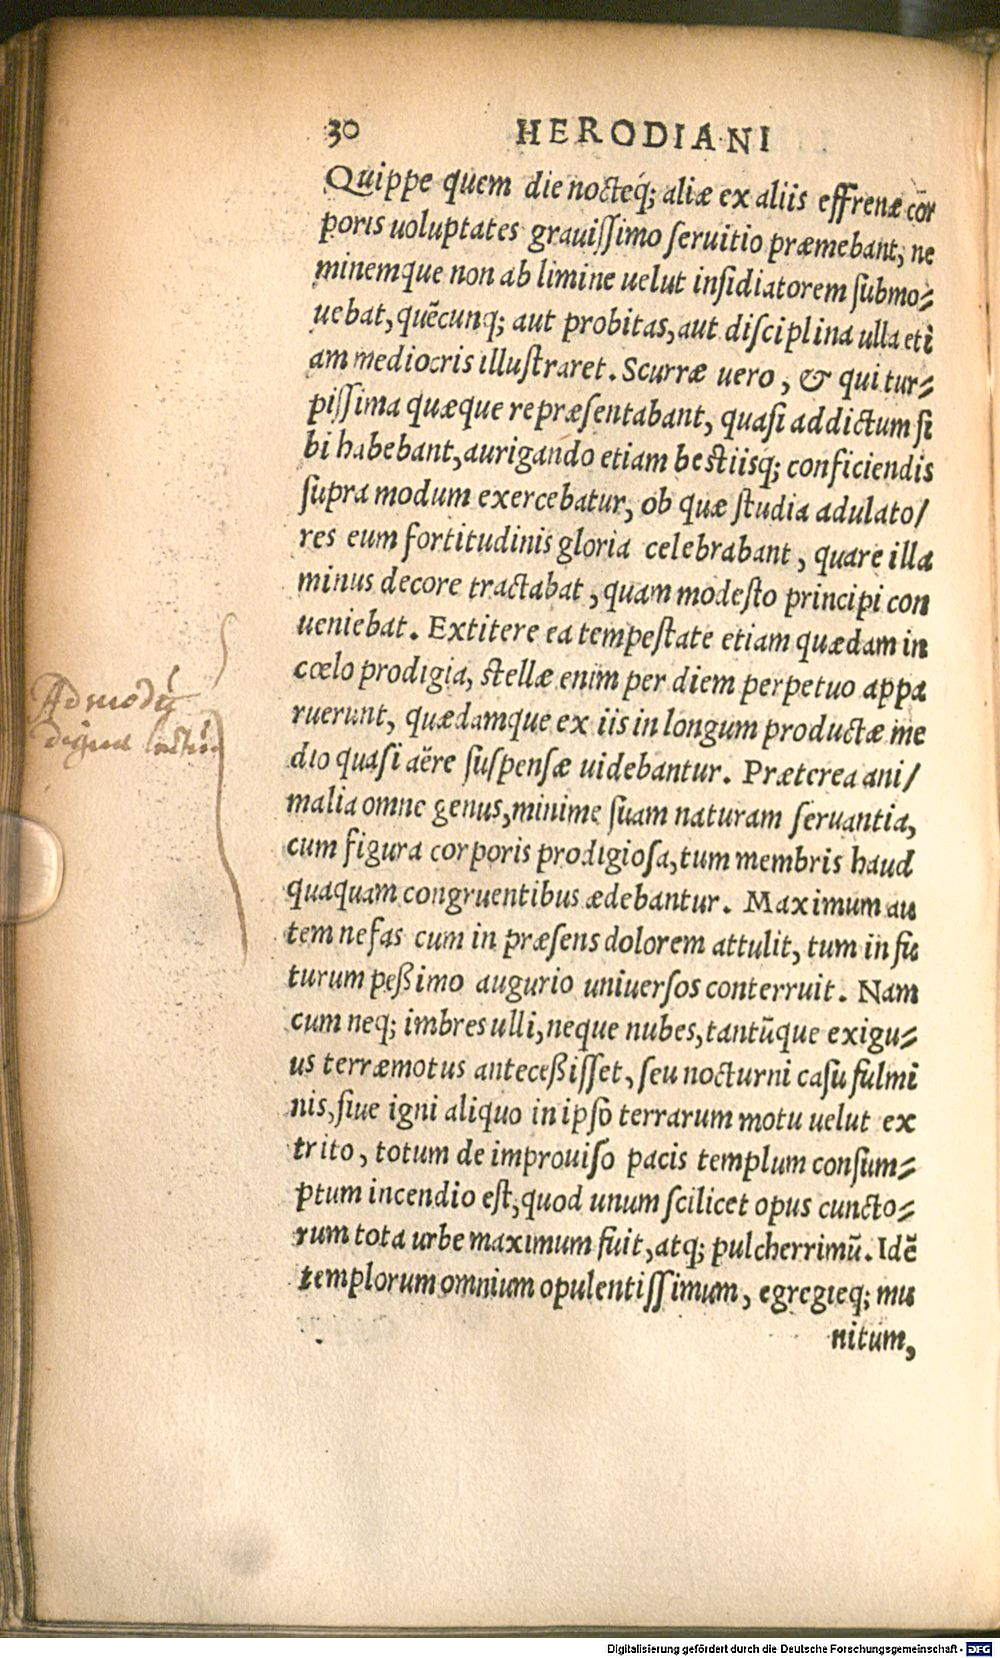 30 HERODIANI
Quippe quem die nocteq; aliæ ex aliis effrenæ cor
poris uoluptates grauissimo seruitio præmebant, ne
minemque non ab limine uelut insidiatorem submo⸗
uebat, quẽcunq; aut probitas, aut disciplina ulla eti
am mediocris illustraret. Scurræ uero, & qui tur⸗
pissima quæque repræsentabant, quasi addictum si
bi habebant, aurigando etiam bestiisq; conficiendis
supra modum exercebatur, ob quæ studia adulato/
res eum fortitudinis gloria celebrabant, quare illa
minus decore tractabat, quam modesto principi con
ueniebat. Extitere ea tempestate etiam quædam in
cœlo prodigia, stellæ enim per diem perpetuo appa
ruerunt, quædamque ex iis in longum productæ me
dio quasi aëre suspensæ uidebantur. Præterea ani/
malia omne genus, minime suam naturam seruantia,
cum figura corporis prodigiosa, tum membris haud
quaquam congruentibus ædebantur. Maximum au
tem nefas cum in præsens dolorem attulit, tum in fu
turum peßimo augurio uniuersos conterruit. Nam
cum neq; imbres ulli, neque nubes, tantũque exigu⸗
us terræmotus anteceßisset, seu nocturni casu fulmi
nis, siue igni aliquo in ipso terrarum motu uelut ex
trito, totum de improuiso pacis templum consum⸗
ptum incendio est, quod unum scilicet opus cuncto⸗
rum tota urbe maximum fuit, atq; pulcherrimũ. Idẽ
templorum omnium opulentissimum, egregieq; mu
nitum,
Admodũ
Digitalisierung gefördert durch die Deutsche Forschungsgemeinschaft - DFG